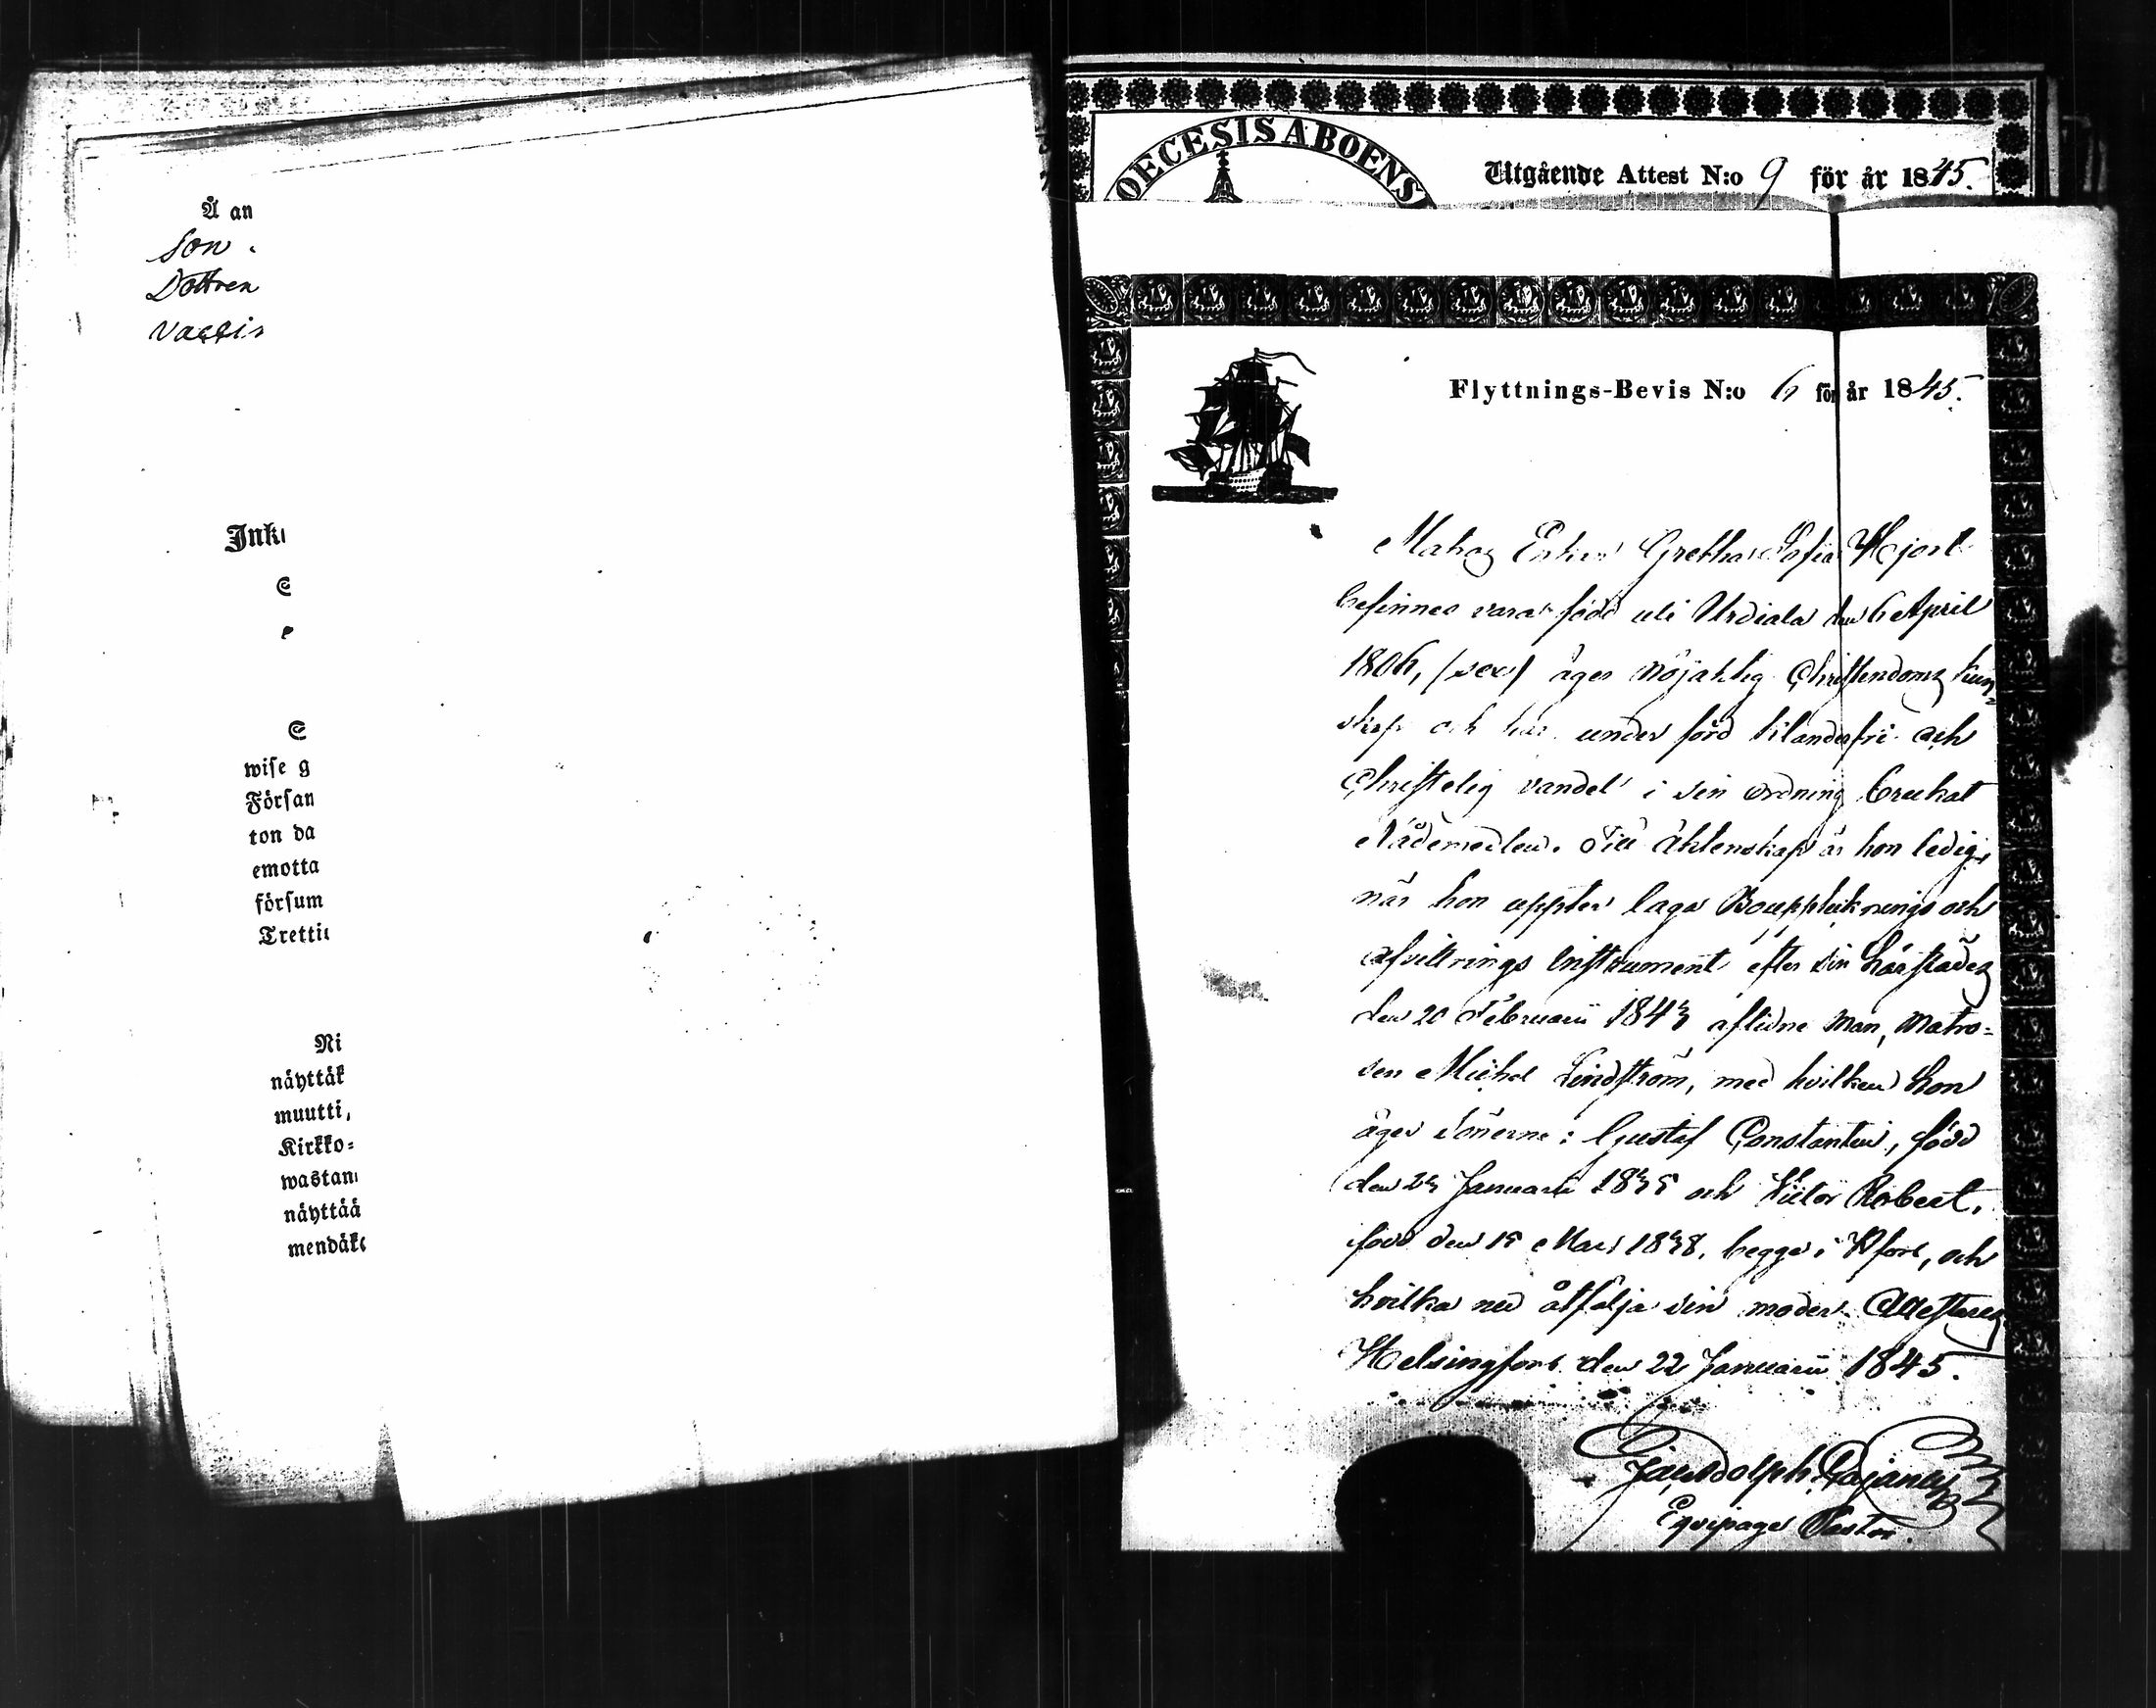 Å an
Son
Dottren
Vaccin
Ink
wise g
Försan
ton da
emotta
försum
Tretti
Ni
näyttäk
muutti,
Kirkko-
wastan
näyttää
mendäk
OECESIS ABOENS
Utgående Attest N:o 9 för år 1845.
Flyttnings-Bevis N:o 6 för år 1845.
Matros Enkan Gretha Sofia Hjort
befinnes vara född uti Urdiala den 6 April
1806, (sex) äger nöjaktig Christendoms kun-
skap och har under förd klanderfri och
Christelig vandel i sin ordning brukat
Nådemedlen. Till äktenskap är hon ledig,
när hon uppter laga Bouppteknings och
afvittrings Instrument efter sin härstädes
den 20 Februarii 1843 aflidne Man, Matro-
sen Michel Lindström, med hvilken hon
äger Sönerne: Gustaf Constantin, född
den Januarii 1835 och Victor Robert,
född den 15 Mars 1838, begge i Hfors, och
hvilka nu åtfölja sin moder. Attesteras
Helsingfors den 22 Januarii 1845.
Jac. Adolph Cajanus
Equipage Pastor.